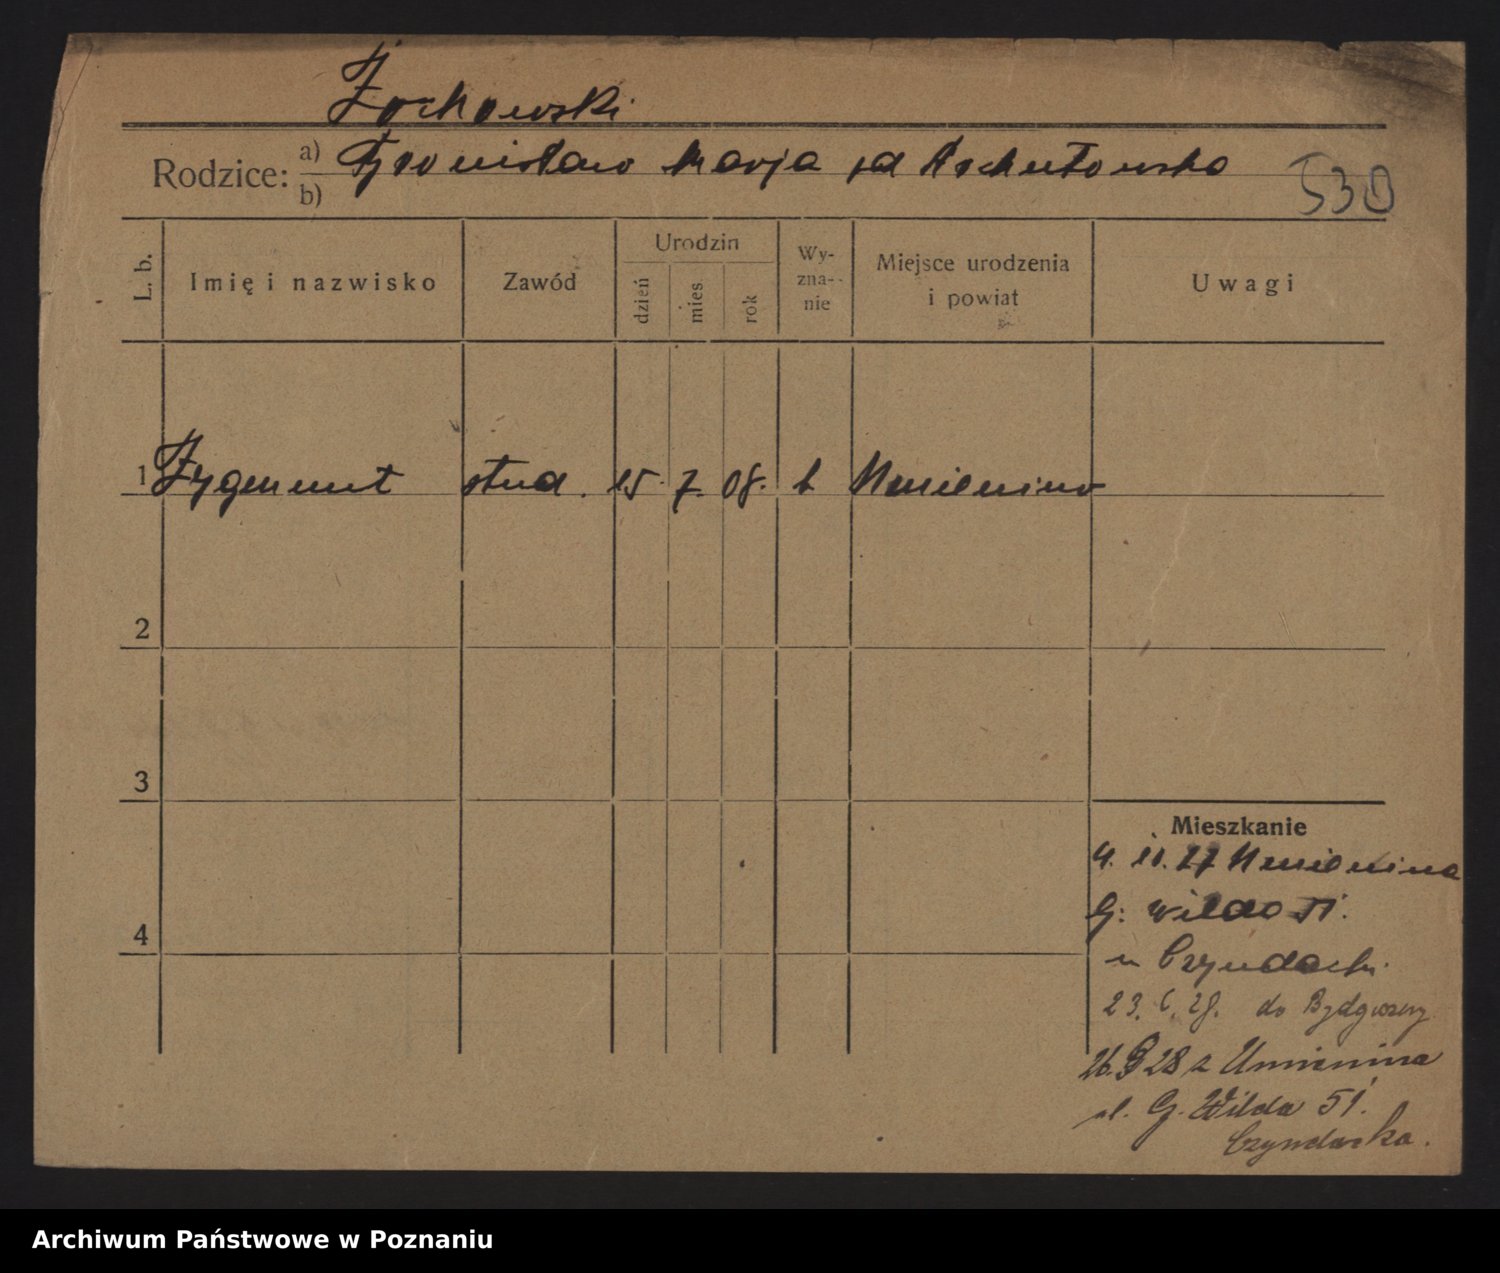 Żochowski
Rodzice: a) Bronisław Marja zd Archutowska
b)
530
L. b. Imię i nazwisko Zawód Urodzin dzień mies. rok Wy-zna-nie Miejsce urodzenia i powiat Uwagi
1 Zygmunt stud. 15. 7. 08. k Umienino
2
3
Mieszkanie
4. 10. 27 Umienina
G: Wilda 51.
4
u Czyndacki.
23. 6. 28. do Bydgoszczy
26. 9 28 z Umienina
ul. G. Wilda 51.
Czyndacka.
Archiwum Państwowe w Poznaniu